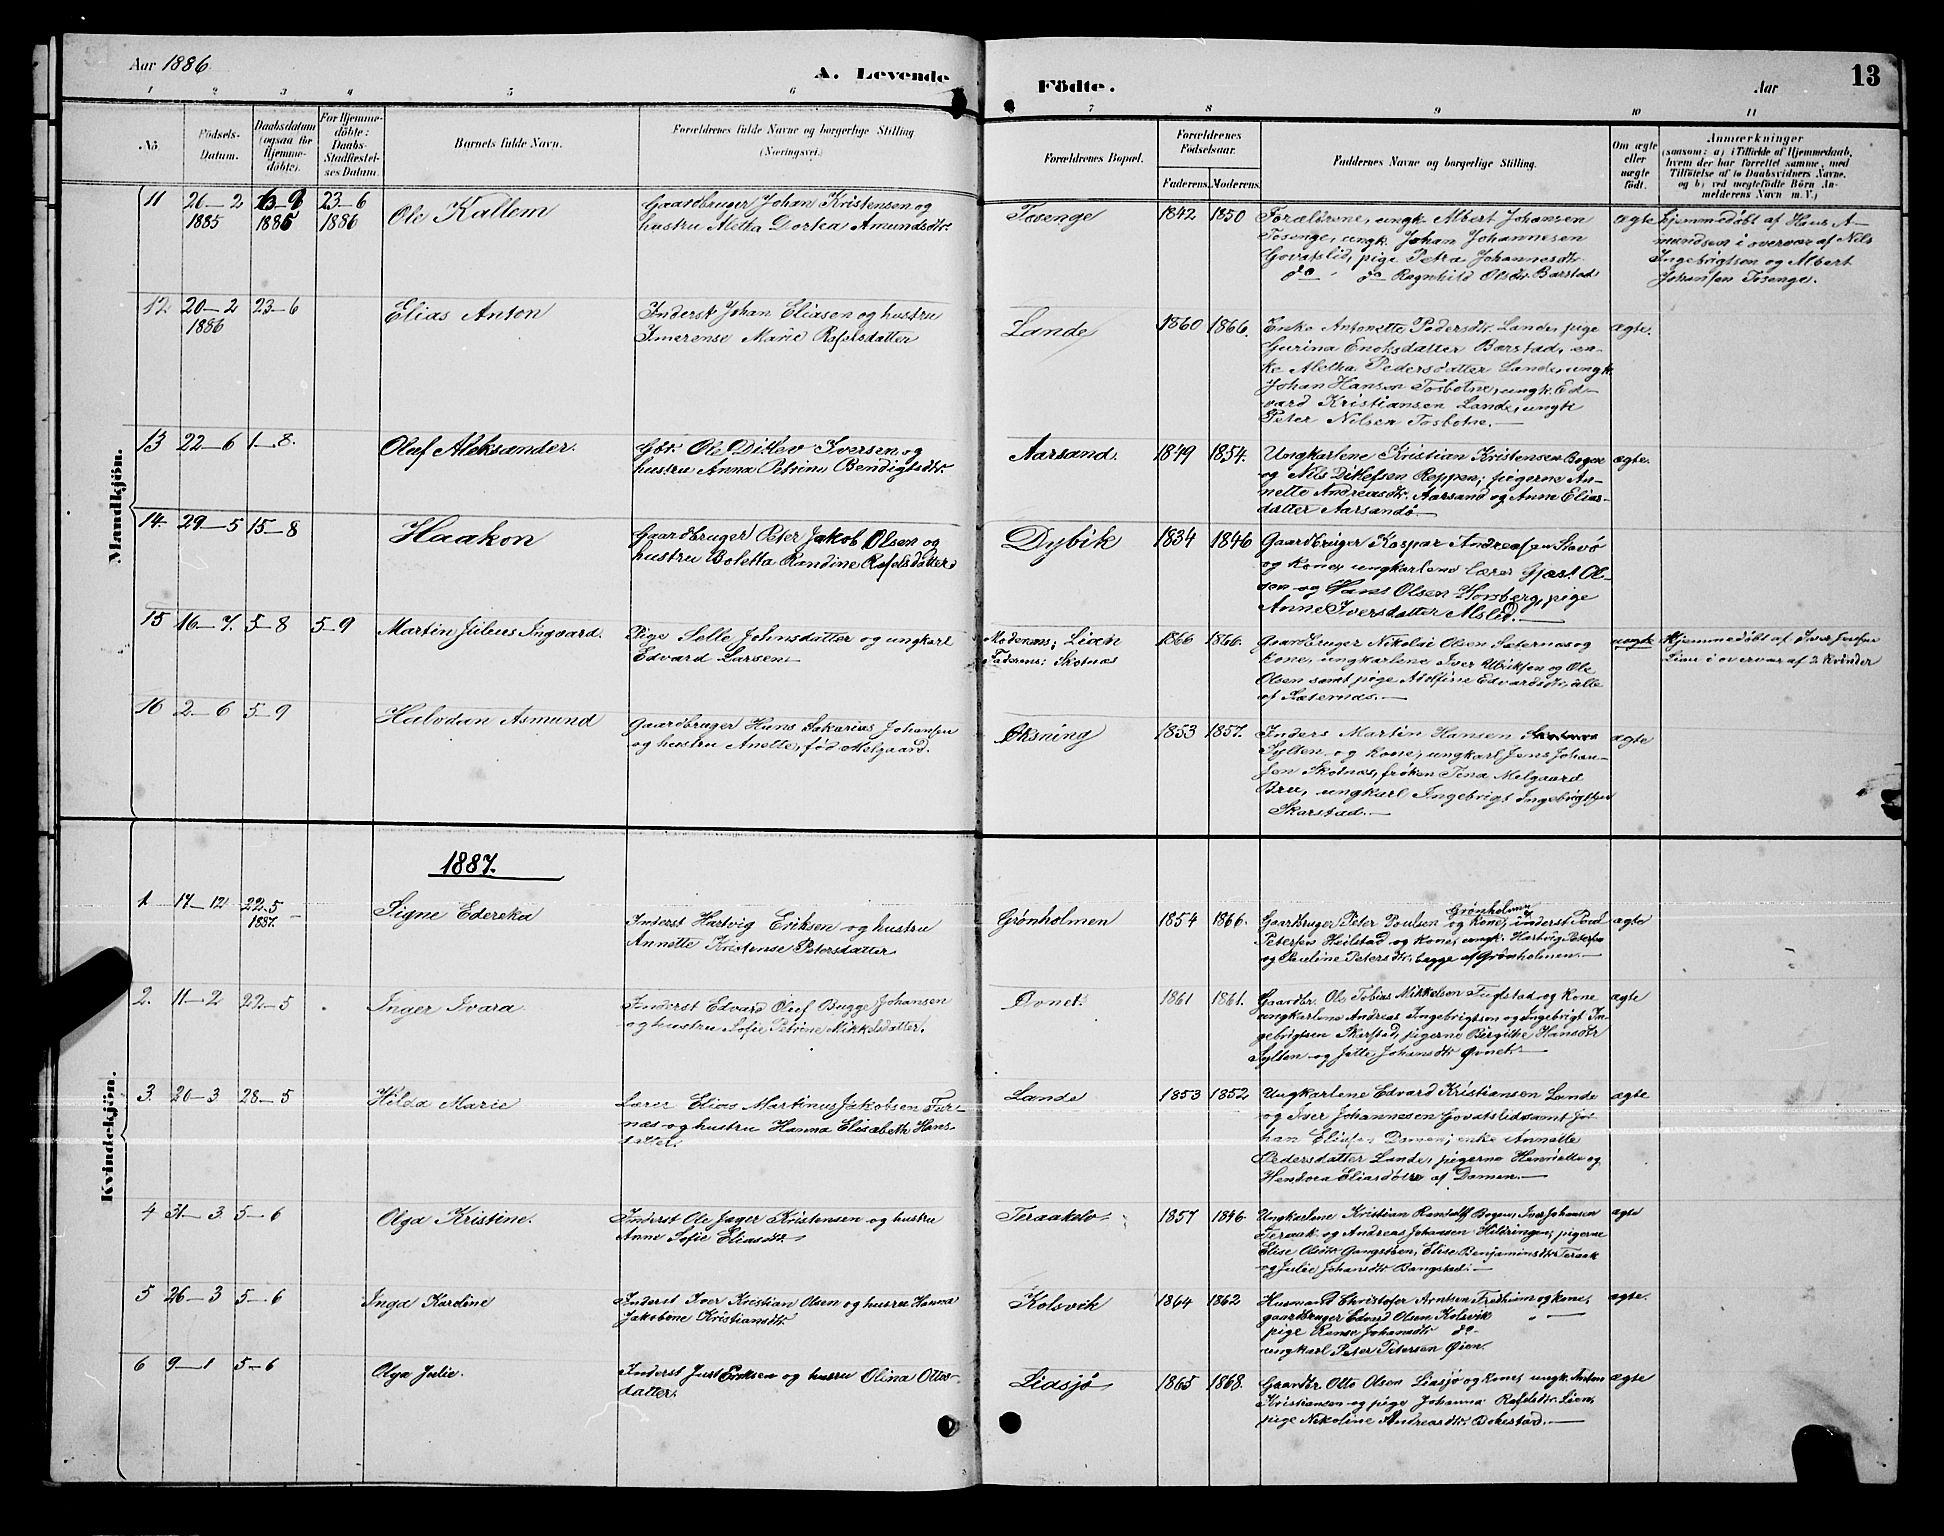 Aar 1886.
A. Levende Födte.
Aar
13
1 2 3 4 5 6 7 8 9 10 11
No
Födsels-Datum.
Daabsdatum (ogsaa for Hjemmedöbte).
For Hjemmedöbte: Daabs-Stadfæstelses Datum.
Barnets fulde Navn.
Forældrenes fulde Navne og borgerlige Stilling (Næringsvei.)
Forældrenes Bopæl.
Forældrenes Födselsaar.
Faderens. Moderens.
Faddernes Navne og borgerlige Stilling.
Om ægte eller uægte födt.
Anmærkninger
(saasom: a) i Tilfælde af Hjemmedaab,
hvem der har forrettet samme, med
Tilföielse af to Daabsvidners Navne.
og b) ved uegtefödte Börn An-
melderens Navn m. V.)
Mandkjön.
11 20–2 1885 23–6 1886
Ole Kallem
Gaardbruger Johan Kristensen og
hustru Aletta Dortea Amundsdtr.
Tosenge 1842 1850
Forældrene, ungk. Albert Johansen
Tosenge, ungk. Johan Johannesen
Govatslid, pige Petra Johannesdtr.
do do Regnhild Olsdtr. Barstad
ægte
hjemmedøbt af Hans A-
mundsen i overvær af Nils
Ingebrigtsen og Albert
Johansen Tosenge.
12 20–2 1886 23–6
Elias Anton
Inderst Johan Eliasen og hustru
Imerense Marie Rafelsdatter
Lande 1860 1866.
Enke Antonette Pedersdtr. Lande, pige
Gurina Enoksdatter Barstad, en-
ke Aletha Pedersdatter Lande, ungk.
Johan Hansen Tosbotne, ungk. Ed-
vard Kristiansen Lande, ungk
Peter Nilsen Tosbotne.
ægte.
13 22–6 1–8.
Oluf Aleksander.
Gbr. Ole Ditlev Iversen og
hustru Anna Petrine Bendigtsdtr.
Aarsand. 1849 1854.
Ungkarlene Kristian Kristensen Bogen
og Nils Ditlefsen Reppen; pigerne An-
nette Andreasdtr. Aarsand og Anne Elias-
datter Aarsandø.
ægte.
14. 29–5 15–8
Haakon
Gaardbruger Peter Jakob Olsen og
hustru Boletta Randine Rafelsdatter
Dybvik 1834 1846
Gaardbruger Kaspar Andreasen Stavø
og kone, ungkarlene lærer Gjæst. Ol-
sen og Hans Olsen Horsberg, pige
Anne Iversdatter Alslid.
15 16–7. 5–8 5–9
Martin Julius Ingvard.
Pige Selle Johnsdatter og ungkarl
Edvard Larsen
Moderens; Lian
Faderens; Skotnæs
1866 1866.
Gaardbruger Nikolai Olsen Sæternæs og
kone, ungkarlene Iver Ulriksen og Ole
Olsen samt pige Adolfine Edvardsdtr., alle
af Sæternæs.
uægte
Hjemmedøbt af Iver
Lian i overvær af 2 kvinder
16 2–6 5–9
Halvdan Asmund
Gaardbruger Hans Sakarias Johansen
og hustru Anette, fød Melgaard.
Øksning 1853 1857.
Inders Martin Hansen
Sylten og kone, ungkarl Jens Johan-
sen Skotnæs, frøken Tina Melgaard
Bru, ungkarl Ingebrigt Ingebrigtsen
Skarstad.
ægte
1887.
Kvindekjön.
1. 17–12 22–5 1887.
Signe Edereka
Inderst Hartvig Eriksen og hustru
Annette Kristense Petersdatter
Grønholmen 1854 1866.
Grønholmen
Gaardbruger Peter Poulsen og kone, inderst Poul
Petersen Heilstad og kone, ungk. Hartvig Petersen
og Pauline Petersdtr. begge af Grønholmen.
ægte
2. 11–2 22–5
Inger Ivara
Inderst Edvard Oluf Bugge Johansen
og hustru Sofie Petrine Mikkelsdatter.
Øvnet. 1861 1861.
Gaardbr. Ole Tobias Mikkelsen Fuglstad og kone
ungkarlene Andreas Ingebrigtsen og Ingebrigt In-
gebrigtsen Skarstad, pigerne Bergithe Hansdtr
Sylten og Jette Johansdtr Øvnet
ægte
3. 20–3 28–5
Hilda Marie
Lærer Elias Martinus Jakobsen Fur-
næs og hustru Hanna Elisabeth Hans-
datter.
Lande 1853 1852
Ungkarlene Edvard Kristiansen Lande
og Iver Johannesen Govatslid samt Jo-
han Eliasen Damen; enke Annette
Pedersdatter Lande, pigerne Henriette og
Hendora Eliasdøtre af Damen.
ægte
4 31–3 5–6
Olga Kristine.
Inderst Ole Jæger Kristensen og hustru
Anne Sofie Eliasdtr.
1857 1846.
Ungkarlene Kristian Randulf Bogen, Iver Johansen
Teraak og Andreas Johansen Hildringen; pigerne
Elise Olsdtr Gangsteen, Elise Benjaminsdtr Teraak
og Julie Johansdtr Bangstad.
ægte
5 26–3 5–6
Inga Kardine
Inderst Iver Kristian Olsen og hustru Hanna
Jakobine Kristiansdtr.
Kolsvik 1864 1862
Husmand Christofer Arntsen Fredheim og kone,
gaardbruger Edvard Olsen Kolsvik
pige Rense Johansdtr do
ungkarl Peter Petersen Øien.
ægte.
6 9–1 5–6
Olga Julie.
Inderst Just Eriksen og hustru Olina Ottos-
datter.
Liasjø 1865 1868.
Gaardbr. Otto Olsen Liasjø og kone, ungk. Anton
Kristiansen og pige Johanna Rafelsdtr. Lien,
pige Nikoline Andreasdtr. Bokestad.
ægte